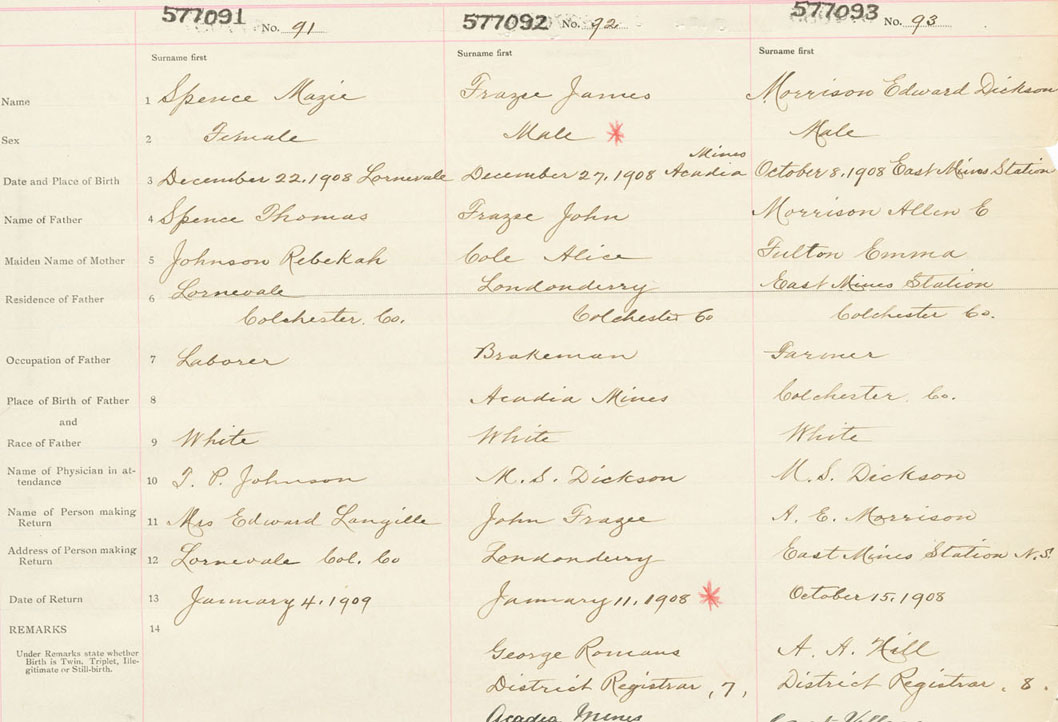 577091 No. 91 577092 No. 92 577093 No. 93
Surname first Surname first Surname first
Name 1 Spence Mazie Frazee James Morrison Edward Dickson
Sex 2 Female Male * Male
Mines
Date and Place of Birth 3 December 22, 1908 Lornevale December 27, 1908 Acadia October 8, 1908 East Mines Station
Name of Father 4 Spence Thomas Frazee John Morrison Allen E
Maiden Name of Mother 5 Johnson Rebekah Cole Alice Fulton Emma
Residence of Father 6 Lornevale Londonderry East Mines Station
Colchester. Co. Colchester Co Colchester Co.
Occupation of Father 7 Laborer Brakeman Farmer
Place of Birth of Father 8 Acadia Mines Colchester. Co.
and
Race of Father 9 White White White
Name of Physician in at-
tendance 10 T. P. Johnson M. S. Dickson M. S. Dickson
Name of Person making
Return 11 Mrs Edward Langille John Frazee A. E. Morrison
Address of Person making
Return 12 Lornevale Col. Co Londonderry East Mines Station N.S.
Date of Return 13 January 4, 1909 January 11, 1908 * October 15, 1908
REMARKS 14
Under Remarks state whether
Birth is Twin, Triplet, Ille-
gitimate or Still-birth.
George Romans A. A. Hill
District Registrar, 7, District Registrar, 8.
Acadia Mines